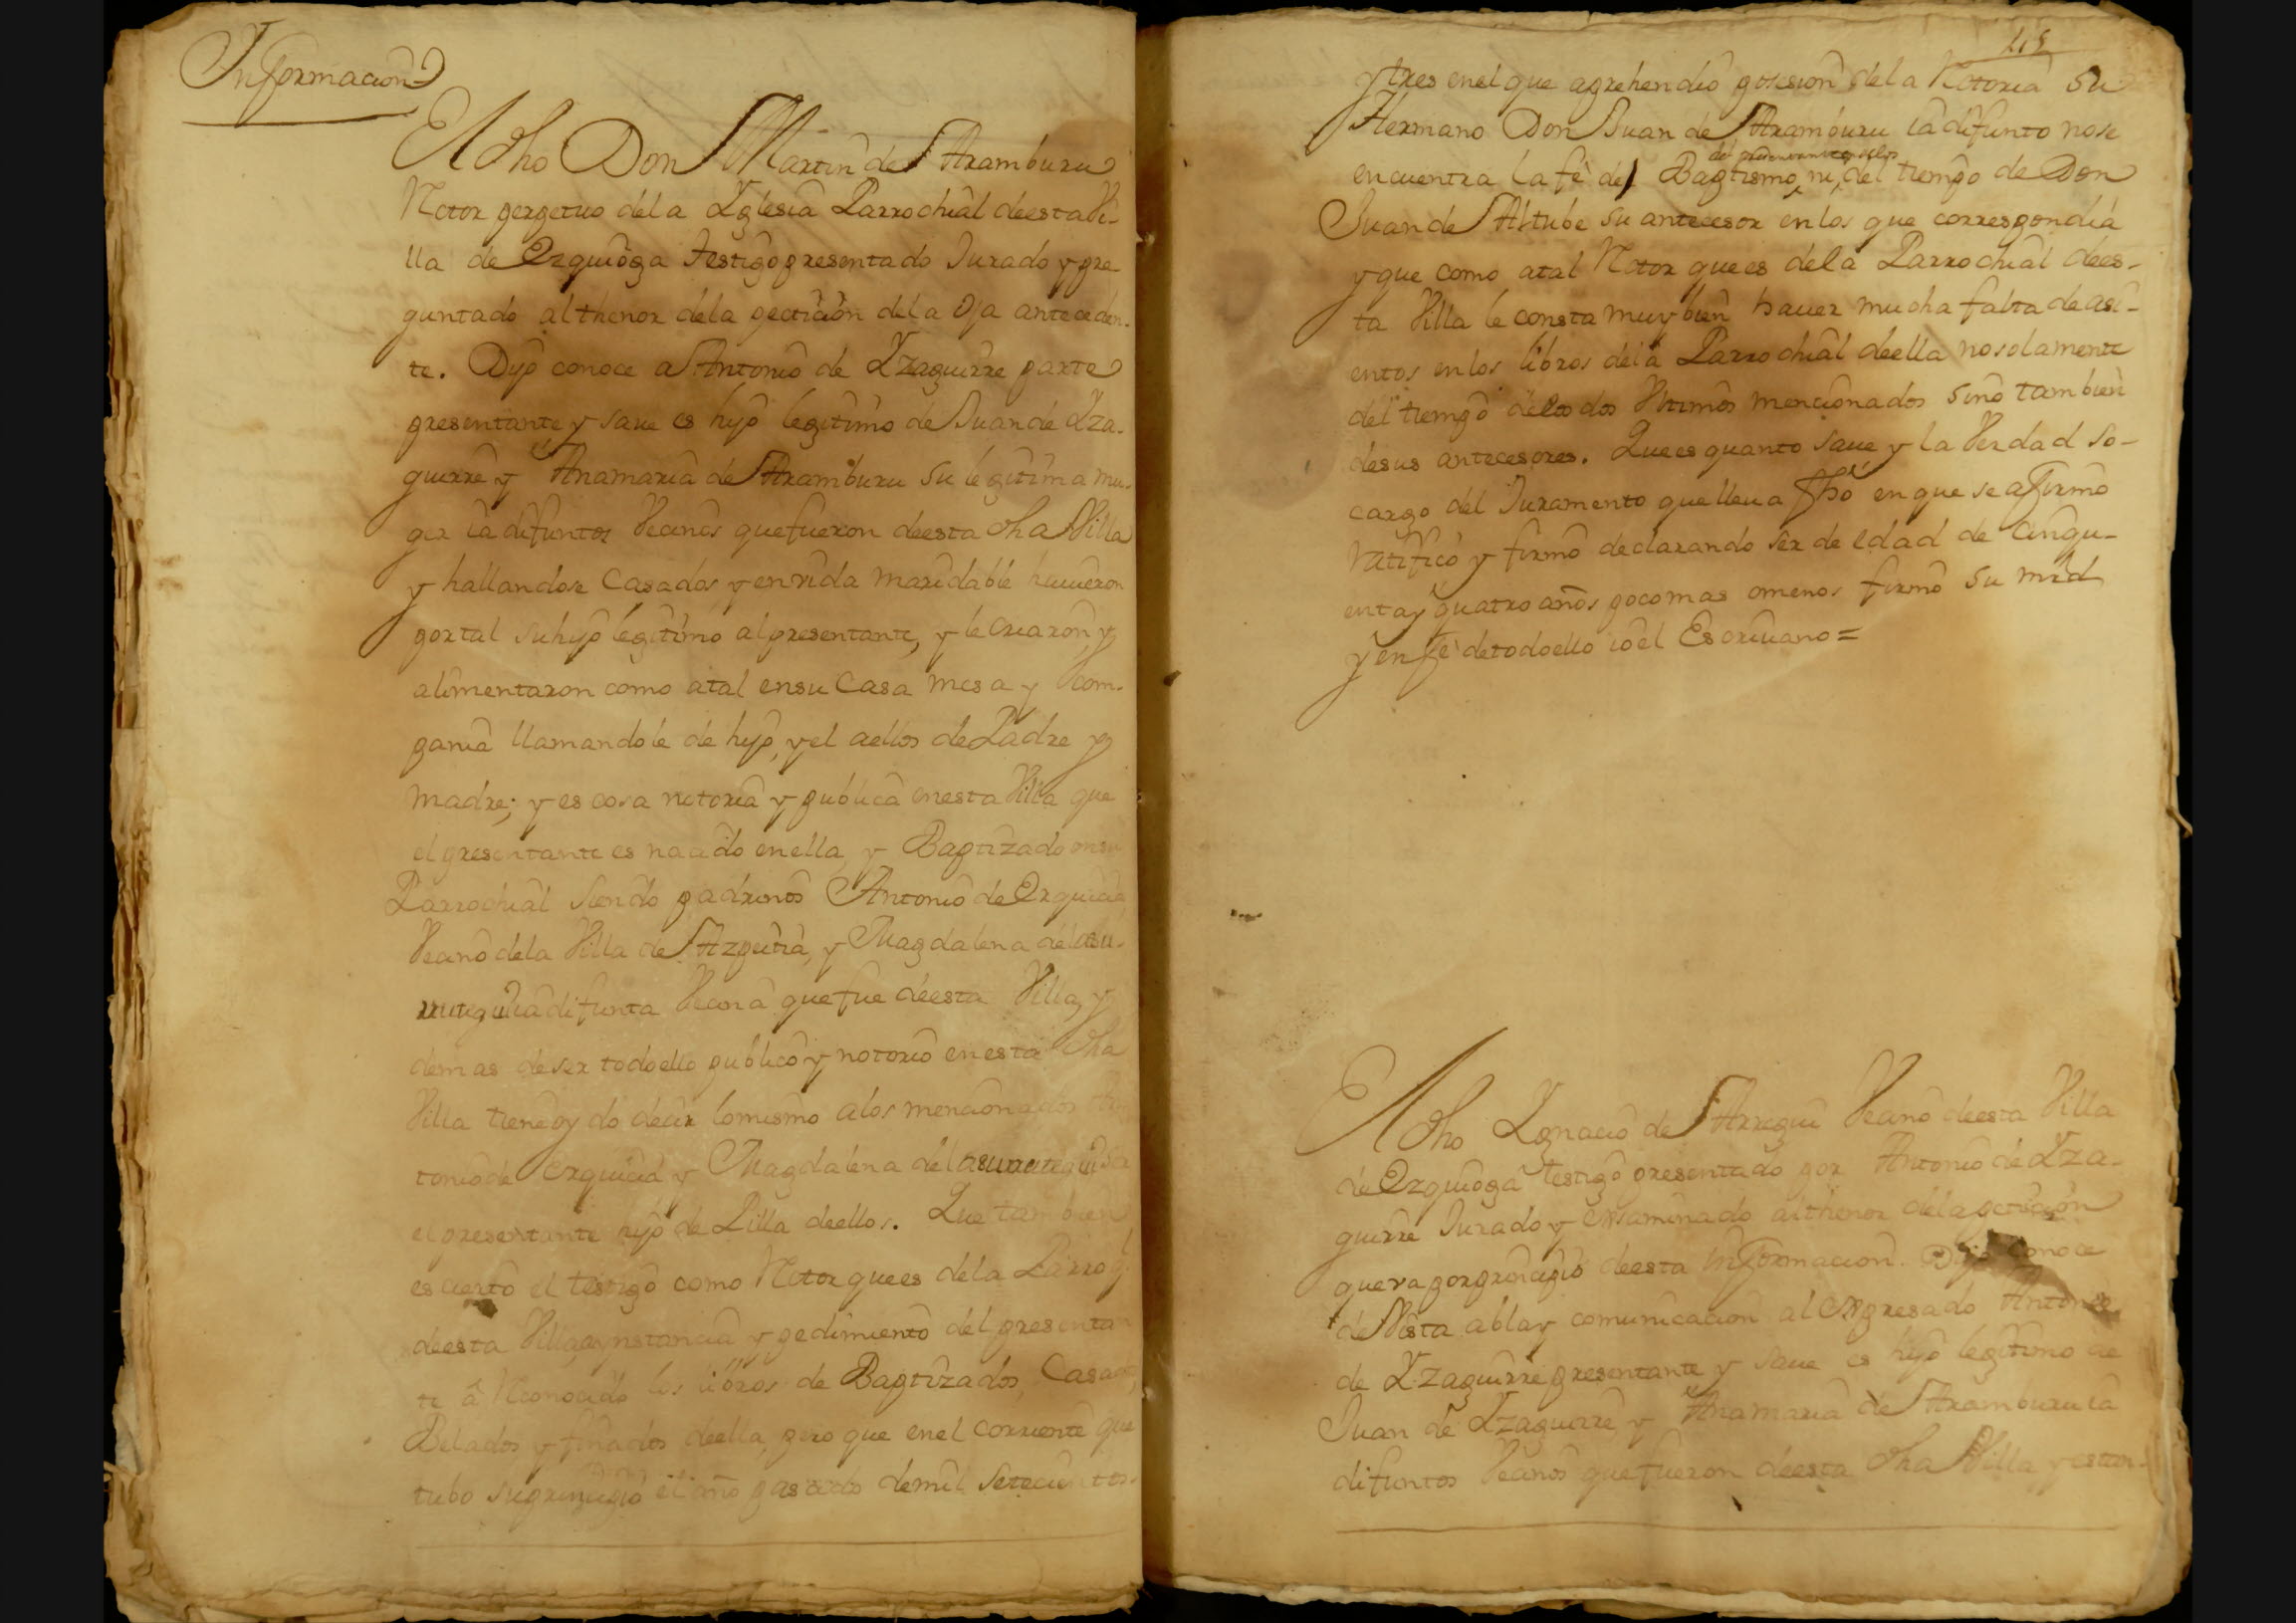 Informacion
El dho Don Martin de Aramburu
Retor perpetuo dela Yglesia Parrochial deesta Vi-
lla de Ezquioga testigo presentado Jurado y pre-
guntado althenor dela peticion dela oja anteceden-
te. Dijo conoce a Antonio de Yzaguirre parte
presentante y save es hijo legitimo de Juan de Yza-
guirre y Anamaria de Aramburu su legitima mu-
ger ia difuntos Vecinos quefueron deesta dha Villa
y hallandose Casados y en vida maridable huuieron
por tal su hijo legitimo al presentante, y le criaron y
alimentaron como atal ensu Casa mesa y Com-
pania llamandole de hijo, y el aellos de Padre y
madre; y es cosa notoria y publica enesta Villa que
el presentante es nacido enella, y Baptizado ensu
Parrochial siendo padrinos Antonio de
Vecino dela Villa de Azpeitia, y Magdalena de
ia difunta Vecina que fue deesta Villa, y
demas de ser todoello publico y notorio en esta dha
Villa tiene oydo decir lomismo alos mencionados An
tonio de y Magdalena de ser
el presentante hijo de Pilla deellos. Que tambien
es cierto el testigo como Retor quees dela Parroql
deesta Villa aynstancia y pedimiento del presentan
te â Reconocido los libros de Baptizados, Casados,
Belados y finados deella, pero que enel corriente que
tubo su principio el año pasado demil setecientos
115
y tres enel que aprehendio posesion dela Retoria su
Hermano Don Juan de Aramburu ia difunto nose
encuentra la fe del Baptismo ni, del tiempo de Don
Juan de Altube su antecesor enlos que correspondia
y que como atal Retor quees dela Parrochial dees-
ta Villa le consta muy bien hauer mucha falta de asi-
entos enlos libros dela Parrochial deella nosolamente
del tiempo delos dos Ultimos mencionados sino tambien
desus antecesores. Quees quanto saue y la Verdad so-
cargo del Juramento quelleua fho en que se afirmo
ratifico y firmo declarando ser de edad de Cinqu-
enta y quatro años poco mas omenos firmo su mrd
y en fe detodoello io el Escriuano =
El dho Ygnacio de Arregui Vecino deesta Villa
de Ezquioga testigo presentado por Antonio de Yza-
guirre Jurado y examinado althenor dela peticion
que va porprincipio deesta informacion. Dijo conoce
de Vista abla y comunicacion al expresado Antonio
de Yzaguirre presentante y saue es hijo legitimo de
Juan de Yzaguirre y Anamaria de Aramburu ia
difuntos Vecinos que fueron deesta dha Villa y estan-